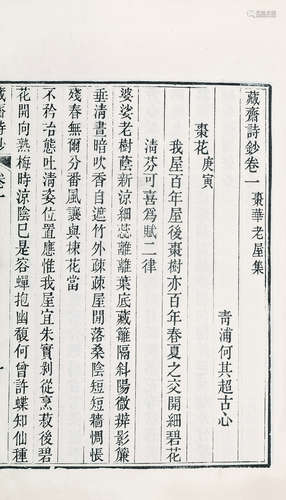 藏齋詩鈔卷一　棗華老屋集
青浦何其超古心
棗花 庚寅
我屋百年屋後棗樹亦百年春夏之交開細碧花
清芬可喜為賦二律
婆娑老樹蔭新涼細蕊離離葉底藏籬隔斜陽微辨影簾
垂清晝暗吹香自遮竹外疎疎屋開落桑陰短短牆惆悵
殘春無爾分番風讓與楝花當
不矜冶態吐清姿位置應惟我屋宜朱實剥從烹菽後碧
花開向熟梅時涼陰已是容蟬抱幽馥何曾許蝶知仙種
藏齋詩鈔 卷一
一